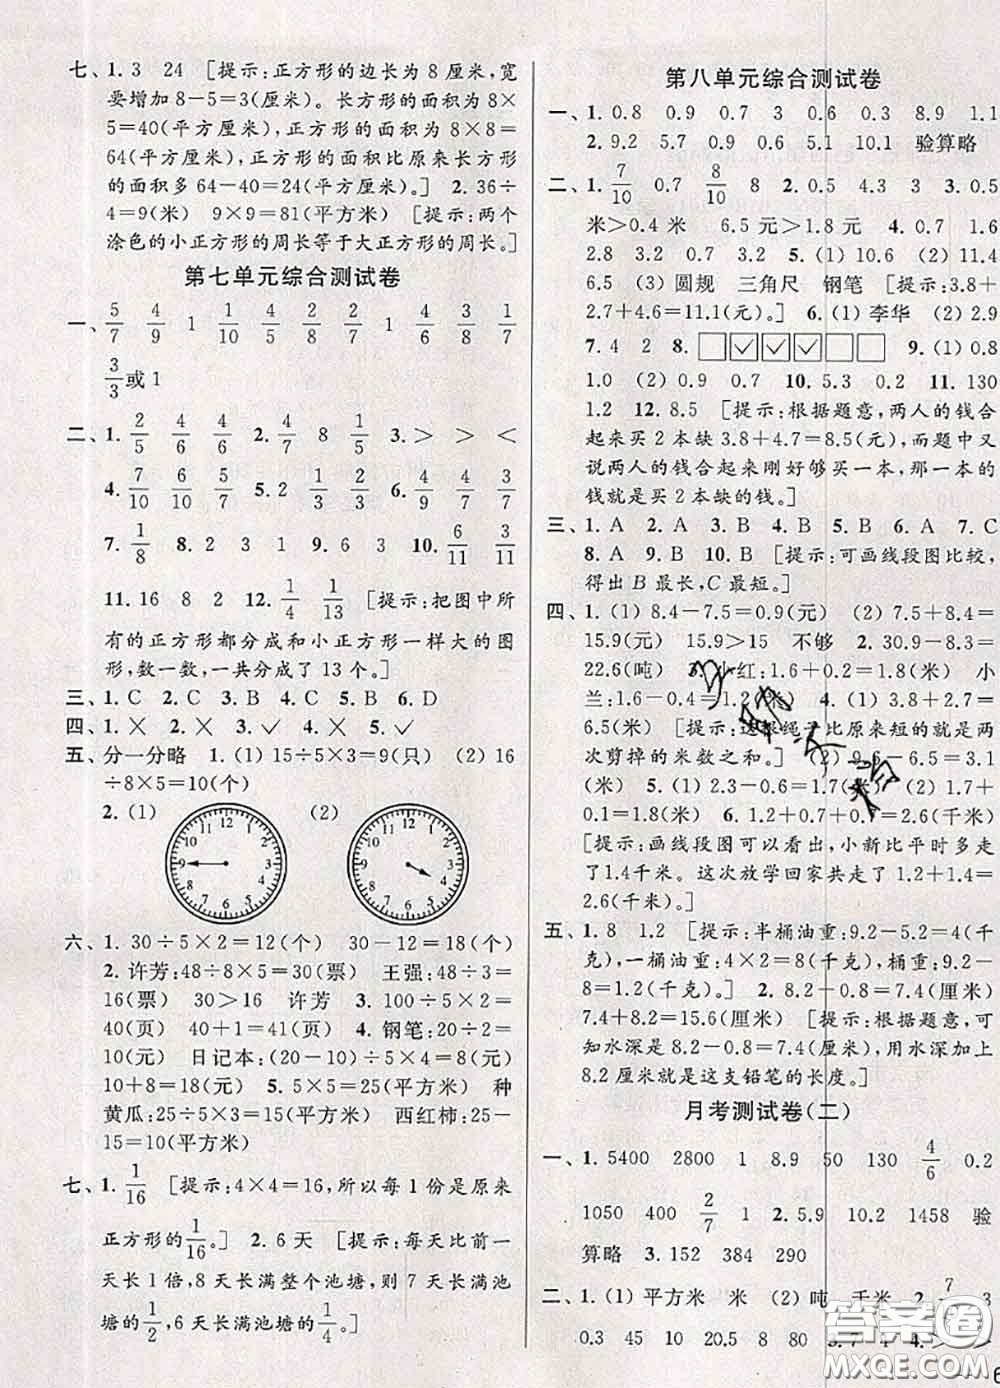 七、1. 3 24 [提示:正方形的边长为 8 厘米,宽
要增加 8-5=3(厘米)。长方形的面积为 8×
5=40(平方厘米),正方形的面积为 8×8=
64(平方厘米),正方形的面积比原来长方形
的面积多 64-40=24(平方厘米)。] 2. 36÷
4=9(米) 9×9=81(平方米) [提示:两个
涂色的小正方形的周长等于大正方形的周长。]
第七单元综合测试卷
一、5/7 4/9 1 1/10 4/5 2/8 2/7 1 4/6 3/8 1/5
3/3或 1
二、1. 2/5 4/6 4/6 2. 4/7 8 1/5 3. > > <
4. 7/10 6/10 5/7 5. 2 1/3 2/3 6. 4/9 4/7
7. 1/8 8. 2 3 1 9. 6 3 10. 6/11 3/11
11. 16 8 2 12. 1/4 1/13 [提示:把图中所
有的正方形都分成和小正方形一样大的图
形,数一数,一共分成了 13 个。]
三、1. C 2. C 3. B 4. C 5. B 6. D
四、1. × 2. × 3. ✓ 4. × 5. ✓
五、分一分略 1. (1) 15÷5×3=9(只) (2) 16
÷8×5=10(个)
2. (1) (2)
11 12 1 10 2 9 3 8 4 7 6 5
11 12 1 10 2 9 3 8 4 7 6 5
六、1. 30÷5×2=12(个) 30-12=18(个)
2. 许芳:48÷8×5=30(票) 王强:48÷3=
16(票) 30>16 许芳 3. 100÷5×2=
40(页) 40+1=41(页) 4. 钢笔:20÷2=
10(元) 日记本:(20-10)÷5×4=8(元)
10+8=18(元) 5. 5×5=25(平方米) 种
黄瓜:25÷5×3=15(平方米) 西红柿:25-
15=10(平方米)
七、1. 1/16 [提示:4×4=16,所以每 1 份是原来
正方形的1/16。] 2. 6 天 [提示:每天比前一
天长 1 倍,8 天长满整个池塘,则 7 天长满池塘
的1/2,6 天长满池塘的1/4。]
第八单元综合测试卷
一、1. 0.8 0.9 0.7 3 0.6 0.3 8.9 1.1
2. 9.2 5.7 0.9 0.6 5.1 10.1 验算略
二、1. 7/10 0.7 8/10 8 2. 0.5 4.3 3 3. 0.5
米>0.4 米 6.5 元>1.8 元 4. 0.7 1.6
2.8 3.2 0.7 5. (1) 10.6 (2) 11.4
6.5 (3) 圆规 三角尺 钢笔 [提示:3.8+
2.7+4.6=11.1(元)。] 6. (1) 李华 (2) 2.9
7. 4 2 8. □ ✓ ✓ ✓ □ □ 9. (1) 0.8
1.0 (2) 0.9 0.7 10. 5.3 0.2 11. 130
1.2 12. 8.5 [提示:根据题意,两人的钱合
起来买 2 本缺 3.8+4.7=8.5(元),而题中又
说两人的钱合起来刚好够买一本,那一本的
钱就是买 2 本缺的钱。]
三、1. A 2. A 3. B 4. B 5. C 6. A 7. C
8. A 9. B 10. B [提示:可画线段图比较,
得出 B 最长,C 最短。]
四、1. (1) 8.4-7.5=0.9(元) (2) 7.5+8.4=
15.9(元) 15.9>15 不够 2. 30.9-8.3=
22.6(吨) 3. 小红:1.6+0.2=1.8(米) 小
兰:1.6-0.4=1.2(米) 4. (1) 3.8+2.7=
6.5(米) [提示:这根绳子比原来短的就是两
次剪掉的米数之和。] (2) 9.6-6.5=3.1
(米) 5. (1) 2.3-0.6=1.7(米) (2) 1.7+
0.1=1.8(米) 6. 1.2+0.7+0.7=2.6(千米)
[提示:画线段图可以看出,小新比平时多走
了1.4千米。这次放学回家共走了 1.2+1.4=
2.6(千米)。]
五、1. 8 1.2 [提示:半桶油重:9.2-5.2=4(千
克),一桶油重:4×2=8(千克),桶重:9.2-
8=1.2(千克)。] 2. 8.2-0.8=7.4(厘米)
7.4+8.2=15.6(厘米) [提示:根据题意,可
知水深是 8.2-0.8=7.4(厘米),用水深加上
8.2 厘米就是这支铅笔的长度。]
月考测试卷(二)
一、1. 5400 2800 1 8.9 50 130 4/6 0.2
1050 400 2/7 1 2. 5.9 10.2 1458 验
算略 3. 152 384 290
二、1. (1) 平方米 米 (2) 吨 千米 2. 3
0.3 45 10 20.5 8 80 3. 7 4 4.
答案圈
MXQE.COM